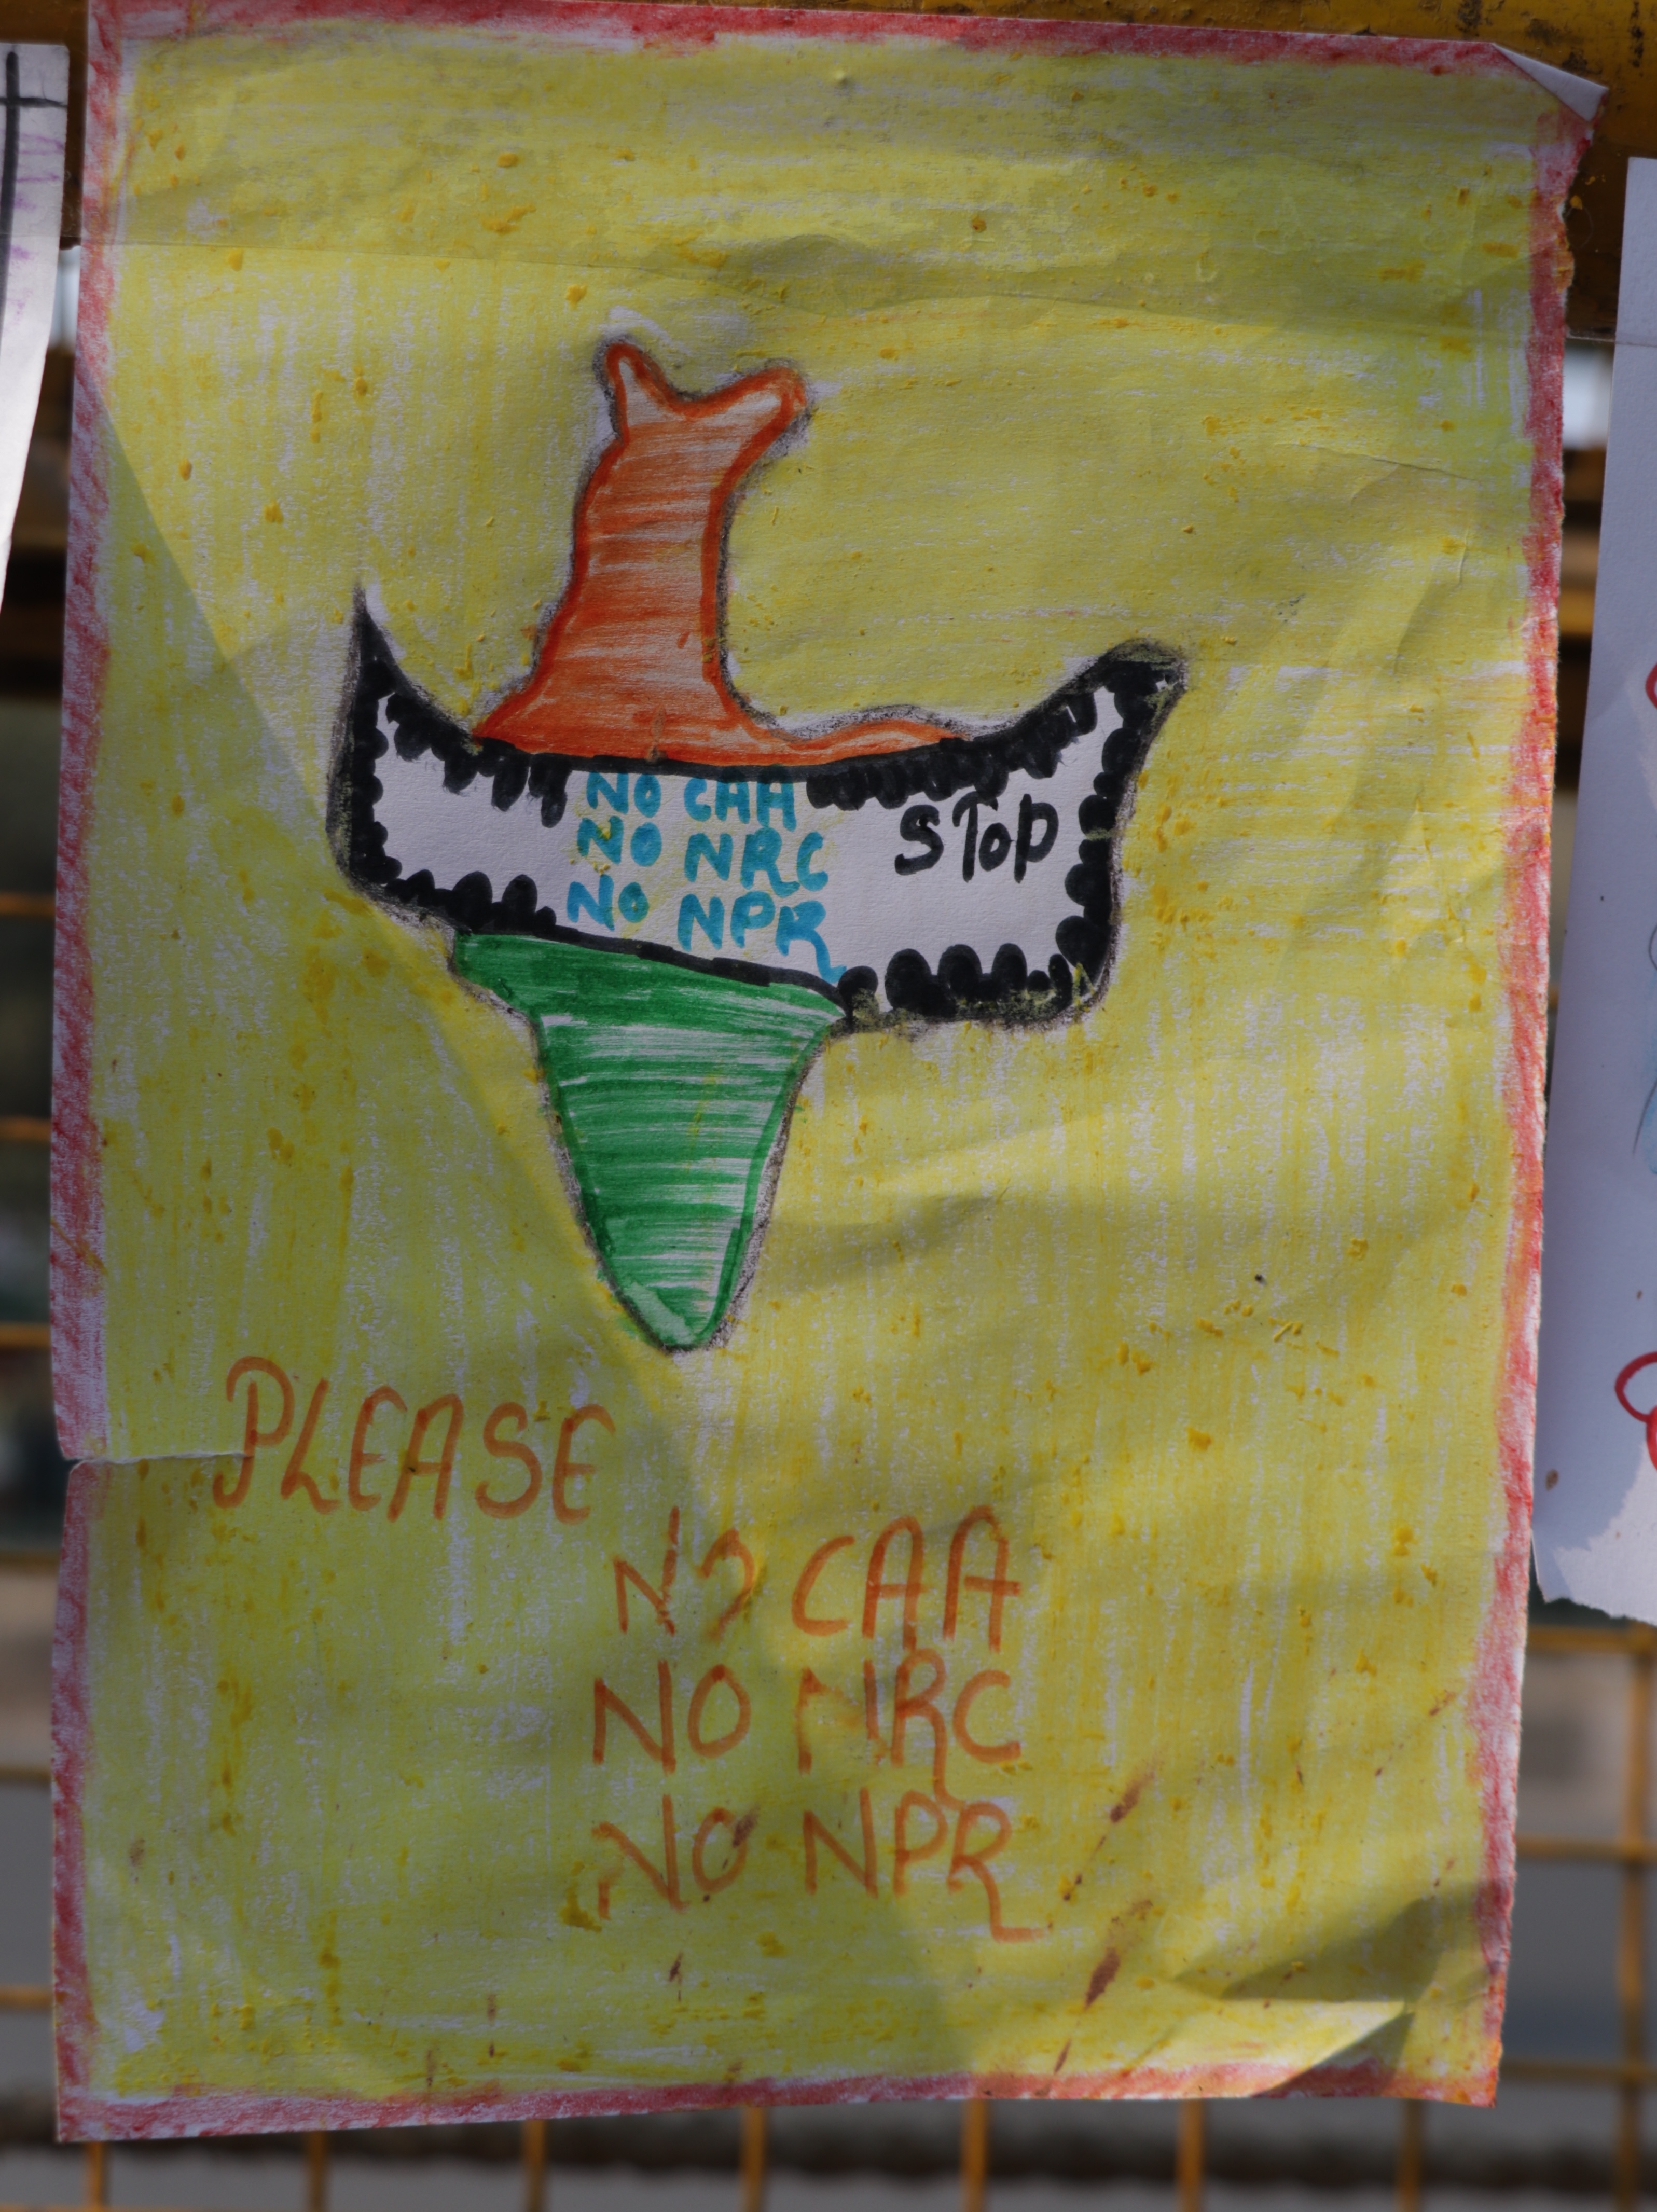 NO CAA
NO NRC
NO NPR
STOP
PLEASE
NO CAA
NO NRC
NO NPR